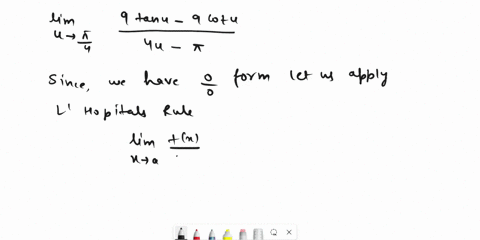 lim u→π/4 (9 tanu - 9 cotu)/(4u - π)
Since, we have 0/0 form let us apply
L' Hopitals Rule
lim x→a f(x)